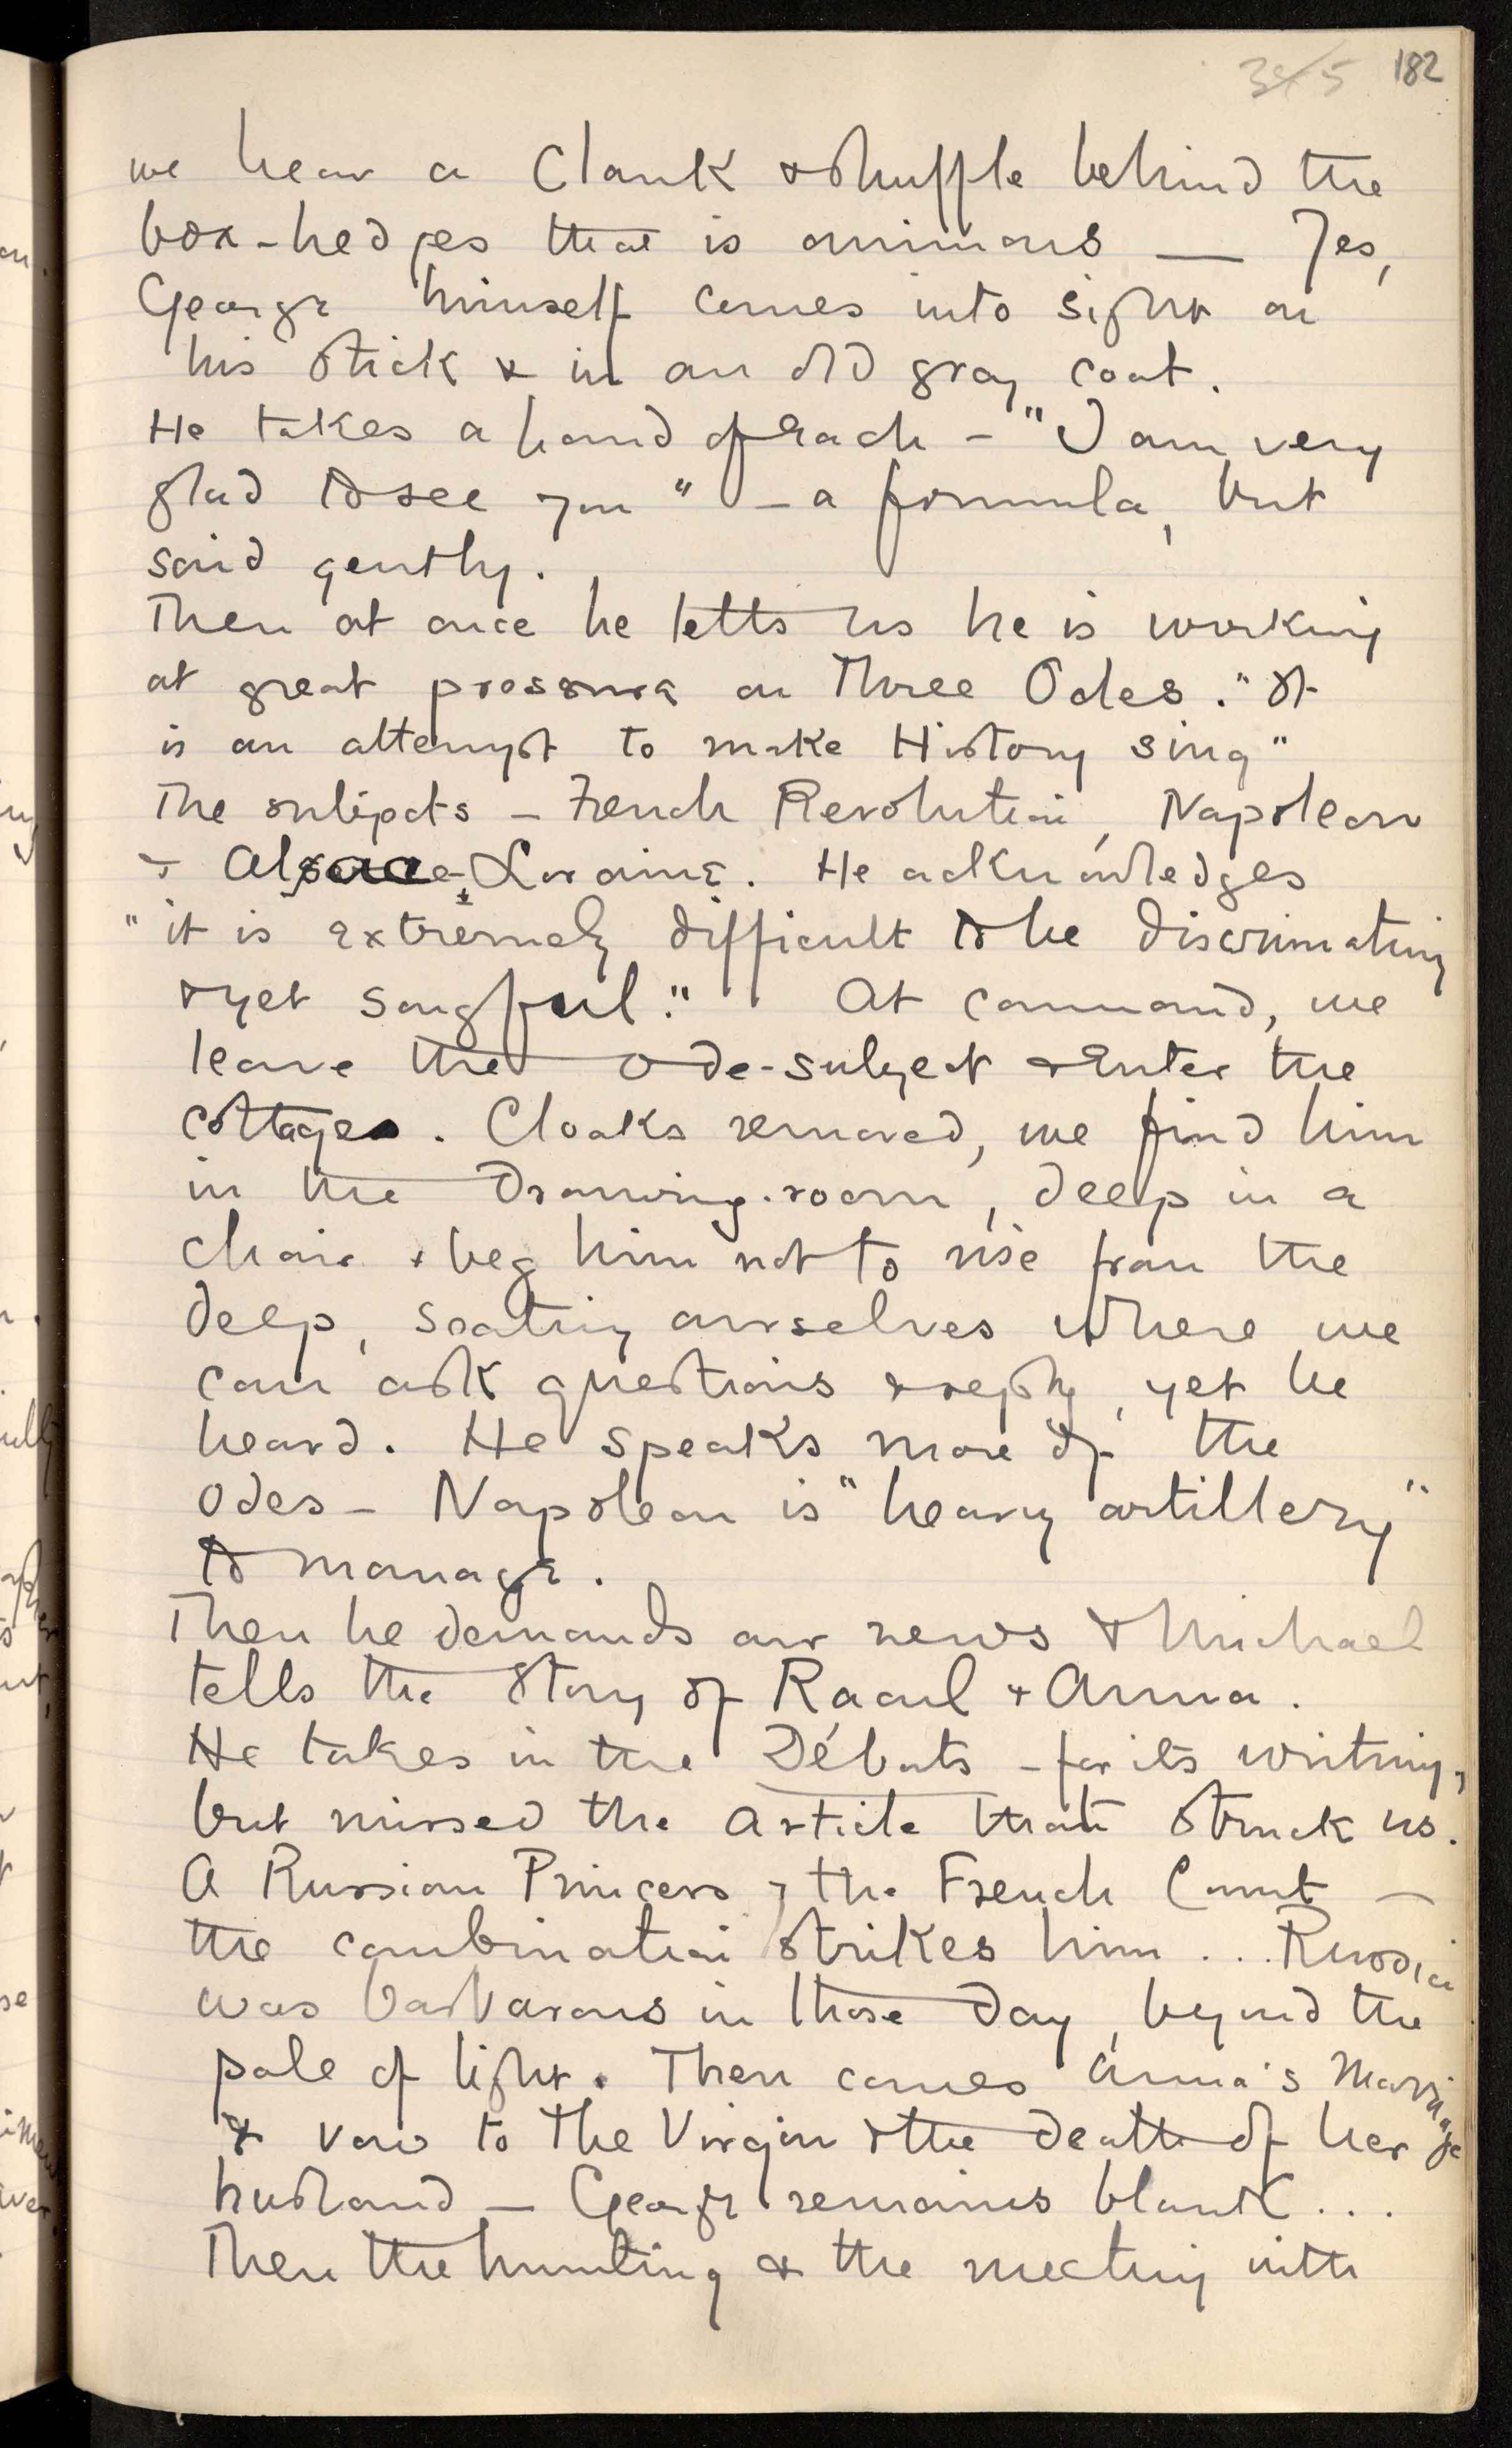 345 182
we hear a Clank & shuffle behind the
box-hedges that is ominous — Yes,
George himself comes into sight on
his stick & in an old gray coat.
He takes a hand of each - "I am very
glad to see you" - a formula, but
said gently.
Then at once he tells us he is working
at great pressure on Three Odes. "It
is an attempt to make History sing"
The subjects - French Revolution, Napoleon
& Alsace-Loraine. He acknowledges
"it is extremely difficult to be discriminating
& yet songful." At command, we
leave the ode-subject & enter the
cottage. Cloaks removed, we find him
in the Drawing-room, deep in a
chair & beg him not to rise from the
deep, seating ourselves where we
can ask questions & reply, yet be
heard. He speaks more of the
Odes - Napoleon is "heavy artillery"
to manage.
Then he demands our news & Michael
tells the story of Raoul & Anna.
He takes in the Débats - for its writing,
but missed the article that struck us.
A Russian Princess & the French Count —
the combination strikes him ... Russia
was barbarous in those day, beyond the
pale of light. Then comes Anna's Marriage
& vow to the Virgin & the death of her
husband — George remains blank ...
Then the hunting & the meeting with